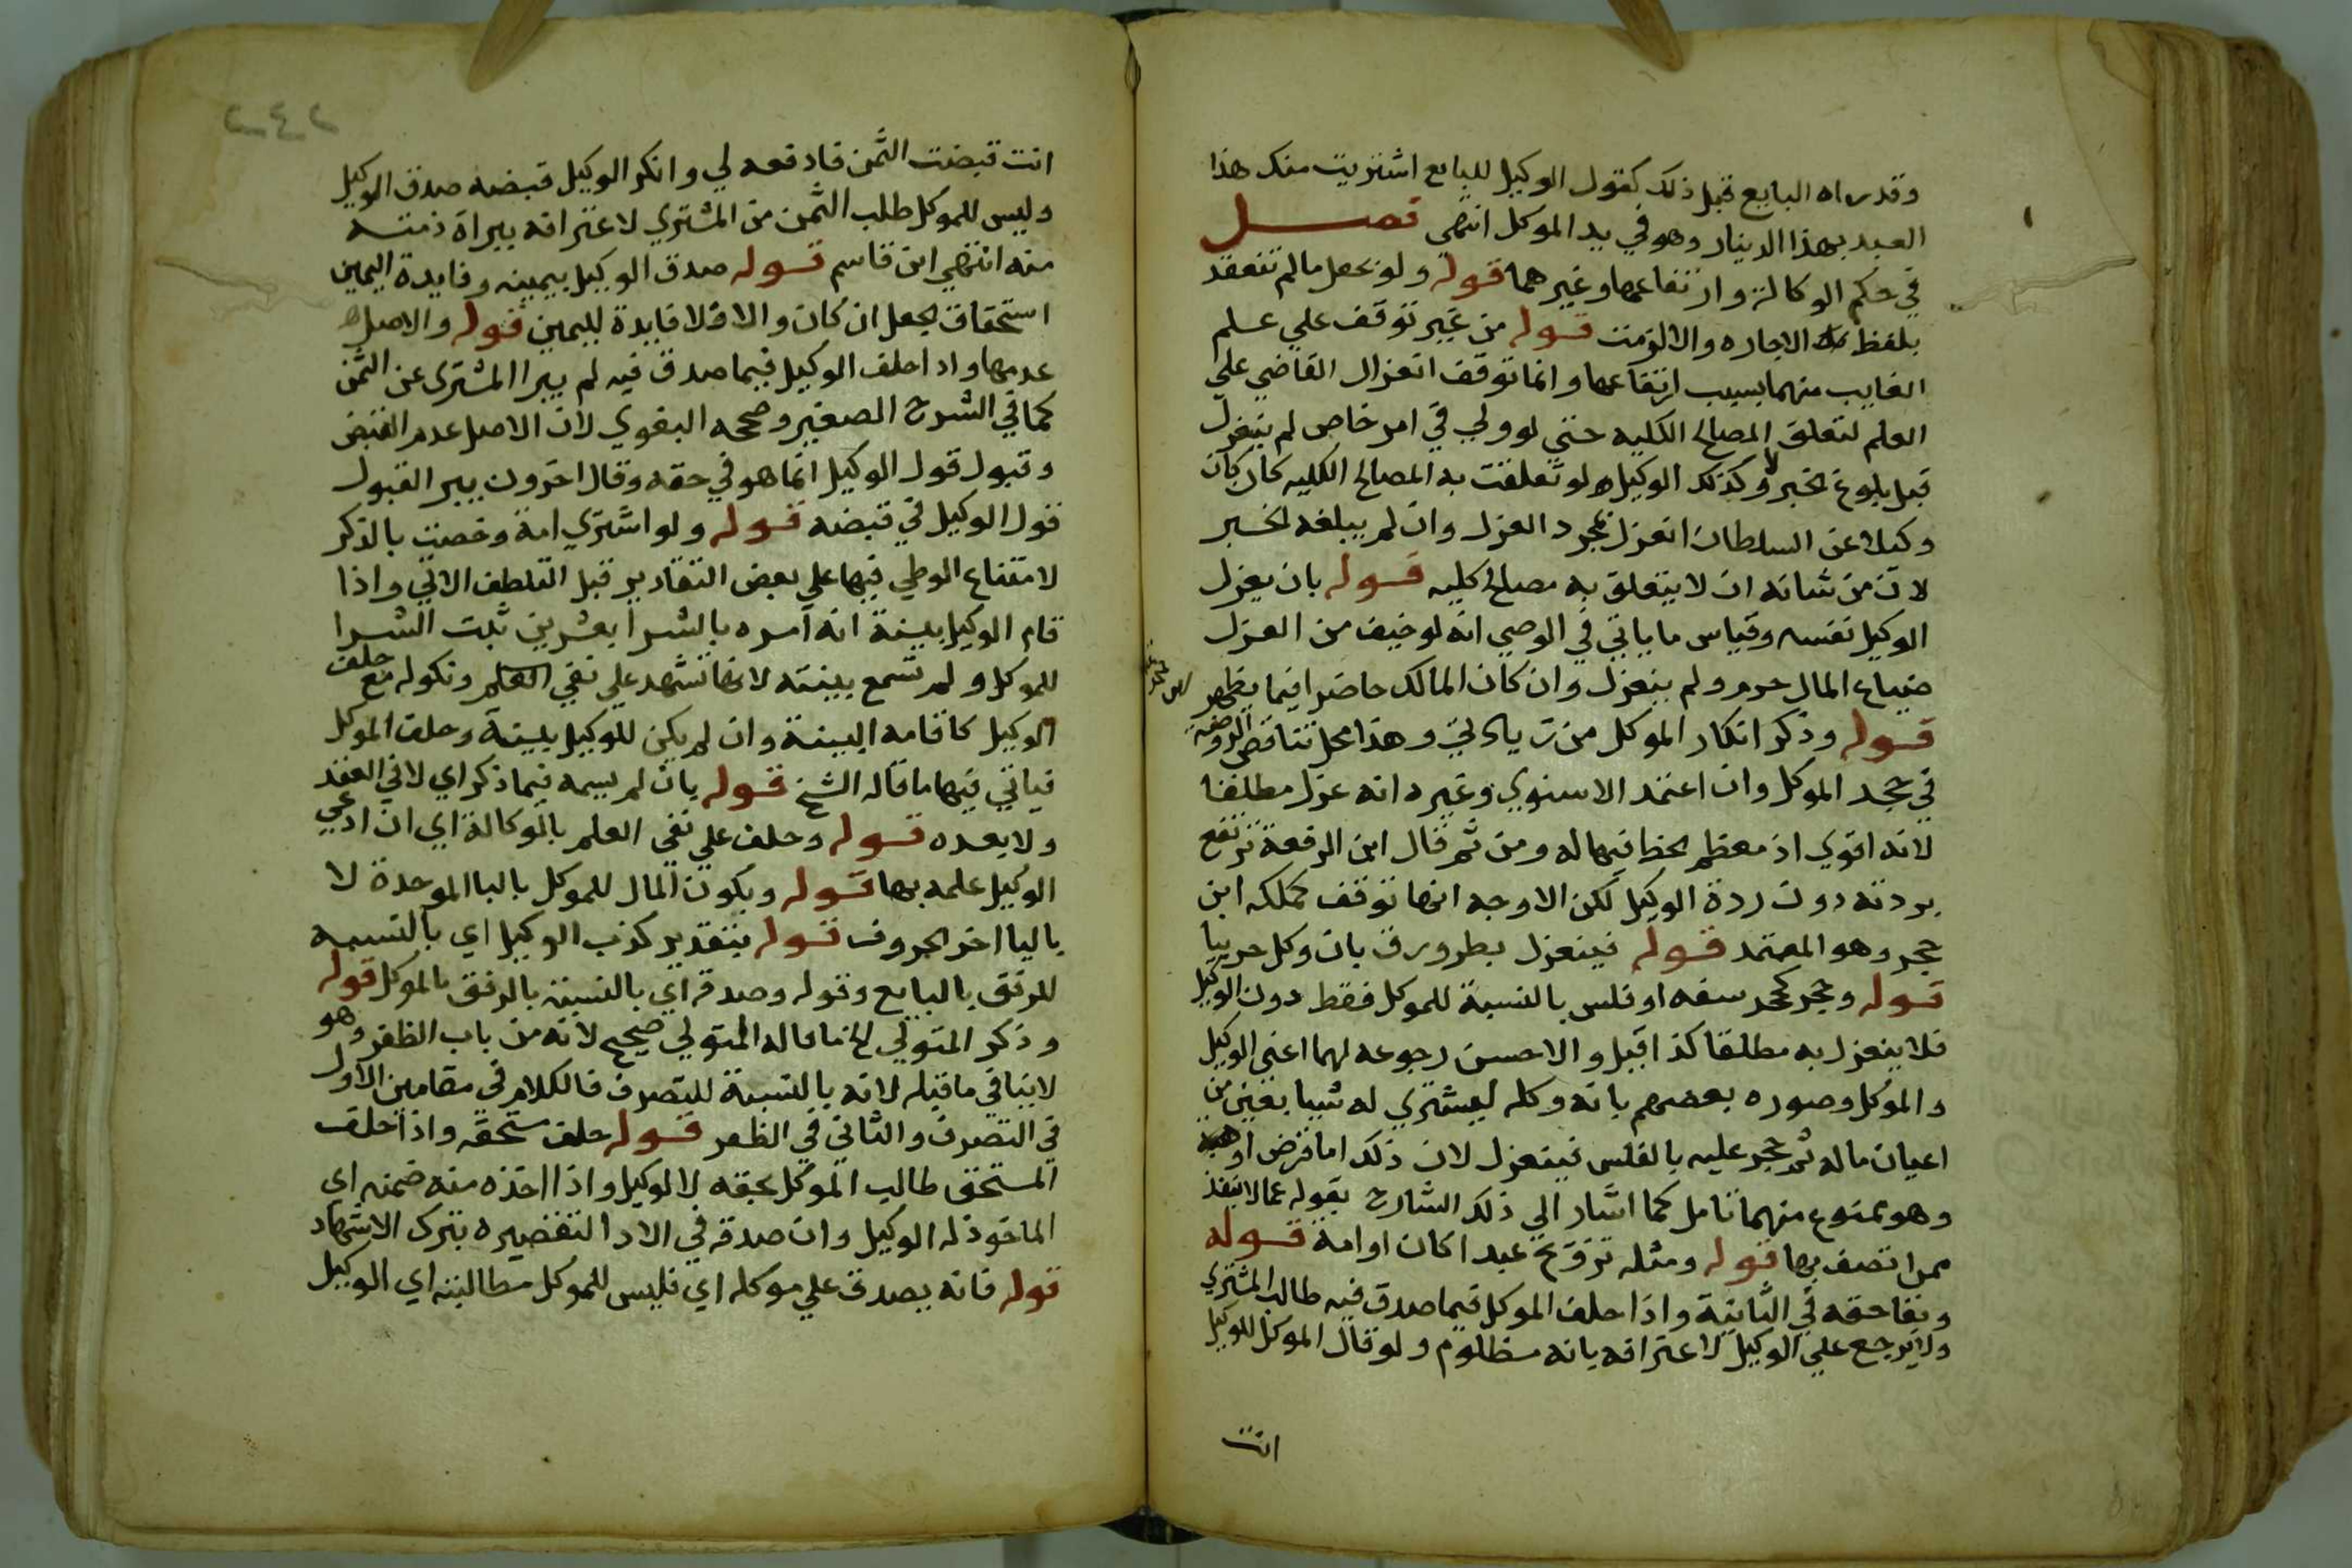 وقد راه البايع قبل ذلك كقول الوكيل للبايع اشتريت منك هذا
العبد بهذا الدينار وهو في يد الموكل انتهى فصل
في حكم الوكالة وارتفاعها وغيرهما قوله ولو بجعل مالم تنعقد
بلفظ الاجاره والا لزمت قوله من غير توقف علي علم
الغايب منهما بسبب ارتفاعها وانما توقف انعزال القاضي علي
العلم لتعلق المصالح الكليه حتي لو ولي في امر خاص لم ينعزل
قبل بلوغ الخبر وكذلك الوكيل لو تعلقت به المصالح الكليه كان كان
وكيلا عن السلطان انعزل بمجرد العزل وان لم يبلغه الخبر
لان من شانه ان لا يتعلق به مصالح كليه قوله بان يعزل
الوكيل نفسه وقياس ما ياتي في الوصي انه لو خيف من العزل
ضياع المال حرم ولم ينعزل وان كان المالك حاضرا فيما يظهر
قوله وذكر انكار الموكل من زيادتي وهذا محل تناقض الروضة
في جحد الموكل وان اعتمد الاسنوي وغيره انه عزل مطلقا
لانه اقوي اذ معظم الحظ فيها له ومن ثم قال ابن الرفعة ترتفع
بردته دون ردة الوكيل لكن الاوجه انها توقف كملكه ابن
حجر وهو المعتمد قوله فينعزل بطرو رق بان وكل حربيا
قوله وحجر كحجر سفه او فلس بالنسبة للموكل فقط دون الوكيل
فلا ينعزل به مطلقا كذا قيل والاحسن رجوعه لهما اعني الوكيل
والموكل وصوره بعضهم بانه وكله ليشتري له شيا بعين من
اعيان ماله ثم حجر عليه بالفلس فينعزل لان ذلك اما قرض او هبة
وهو ممنوع منهما تامل كما اشار الي ذلك الشارح بقوله عما لا ينفذ
ممن اتصف بها قوله ومثله تزويج عبدا كان او امة قوله
وبقا حقه في الثانية واذا حلف الموكل فيما صدق فيه طالب المشتري
ولا يرجع علي الوكيل لاعترافه بانه مظلوم ولو قال الموكل للوكيل
انت
٢٤٢
انت قبضت الثمن فادفعه لي وانكر الوكيل قبضه صدق الوكيل
وليس للموكل طلب الثمن من المشتري لاعترافه ببراة ذمته
منه انتهي ابن قاسم قوله صدق الوكيل بيمينه وفايدة اليمين
استحقاق الجعل ان كان والا فلا فايدة لليمين قوله والاصل
عدمها واذا حلف الوكيل فيما صدق فيه لم يبرا المشتري عن الثمن
كما في الشرح الصغير وصححه البغوي لان الاصل عدم القبض
وقبول قول الوكيل انما هو في حقه وقال اخرون يبرا لقبول
قول الوكيل في قبضه قوله ولو اشتري امة وخصت بالذكر
لامتناع الوطي فيها علي بعض التقادير قبل التلطف الاتي واذا
قام الوكيل بينة انه امره بالشرا بعشرين ثبت الشرا
للموكل ولم تسمع بينته لانها تشهد علي نفي العلم ونكوله مع حلف
الوكيل كاقامه البينة وان لم يكن للوكيل بينة وحلف الموكل
فياتي فيها ما قاله الشيخ قوله بان لم يسمه فيما ذكر اي لا في العقد
ولا بعده قوله وحلف علي نفي العلم بالوكالة اي ان ادعي
الوكيل علمه بها قوله ويكون المال للموكل بالبا الموحدة لا
باليا اخر الحروف قوله بتقدير كذب الوكيل اي بالنسبه
للرفق بالبايع وقوله وصدقه اي بالنسبة بالرفق بالموكل قوله
وذكر المتولي الخ ما قاله المتولي صحيح لانه من باب الظفر وهو
لا ينافي ما قبله لانه بالنسبة للتصرف فالكلام في مقامين الاول
في التصرف والثاني في الظفر قوله حلف مستحقه واذا حلف
المستحق طالب الموكل بحقه لا الوكيل واذا اخذه منه ضمنه اي
الماخوذ له الوكيل وان صدقه في الادا لتقصيره بترك الاشهاد
قوله فانه يصدق علي موكله اي فليس للموكل مطالبته اي الوكيل